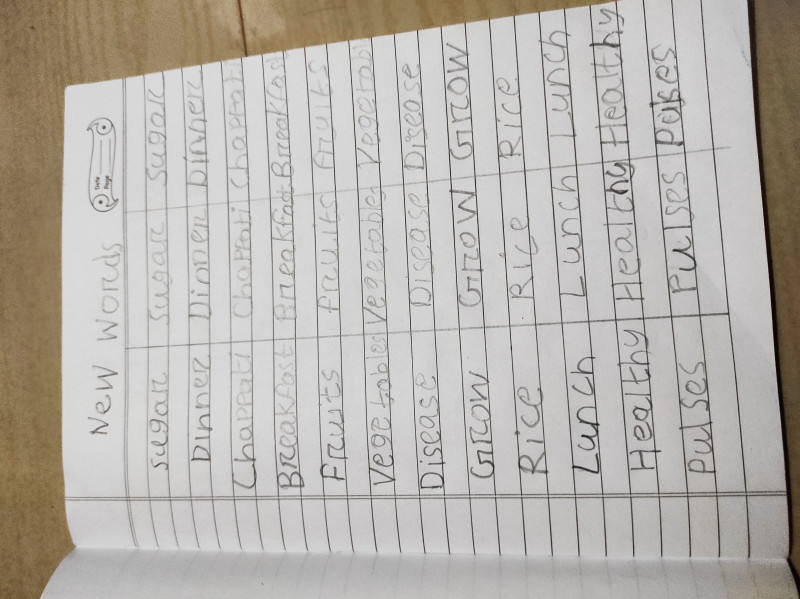 New words
Date
Page
Sugar Sugar Sugar
Dinner Dinner Dinner
Chappati Chappati Chappati
Breakfast Breakfast Breakfast
Fruits Fruits Fruits
Vegetables Vegetables Vegetabl
Disease Disease Disease
Grow Grow Grow
Rice Rice Rice
Lunch Lunch Lunch
Healthy Healthy Healthy
Pulses Pulses Pulses